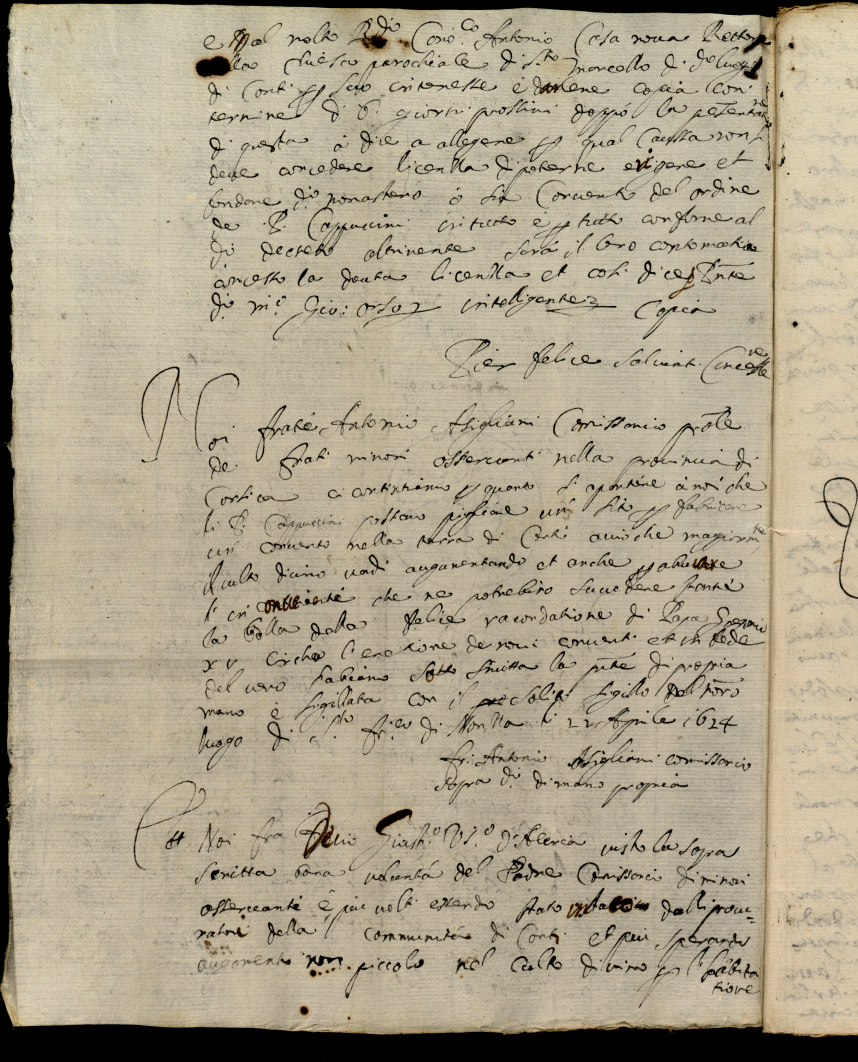 e al molto R.do Cano.co Antonio Casa nova Rettore
della Chiesa parochiale di S.to Marcello di d.o luogo
di Corti p suo interesse e darlene copia con
termine di 6. giorni prossimi doppo la
di questa à dire a allegare p qual Caussa non si
deve concedere licenza di poterne erigere et
fondare d.o monastero ò sia Convento del ordine
de P. Cappuccini in tutto e p tutto conforme al
d.o decreto altrimente sarà il loro contomatia
concesso la devuta licenza et cosi dice
d.o m.o Gio: Orso intelligente Copia
Pier felice Salviati
Noi frate Antonio Asigliani Comissario
de frati minori osservanti nella provincia di
Corsica ci contintiamo p quanto si apartine à noi che
li P. Cappuccini possano pigliare un sito p fabricare
un convento nella terra di Corti acciòche magiorm.te
il culto divino vadi augumentando et anche p
che ne potrebino succedere stante
la bolla della felice racordatione di Papa Gregorio
xv circha l'eretione de novi conventi et in fede
del vero habiamo sotto scritta la pnte di propria
mano è sigillata con il solito sigillo del nro
luogo di S. fr.co di li 22 Aprile 1624
fr: Antonio Asigliani comissario
sopra d.o di mano propria
Noi fra d'Aleria visto la sopra
scritta bona voluntà del Padre Comissario di minori
osservanti è piu volti essendo stato dalli procu=
ratori della communità di Corti et piu sperando
augmento non piccolo nel culto divino p l'habita
tione